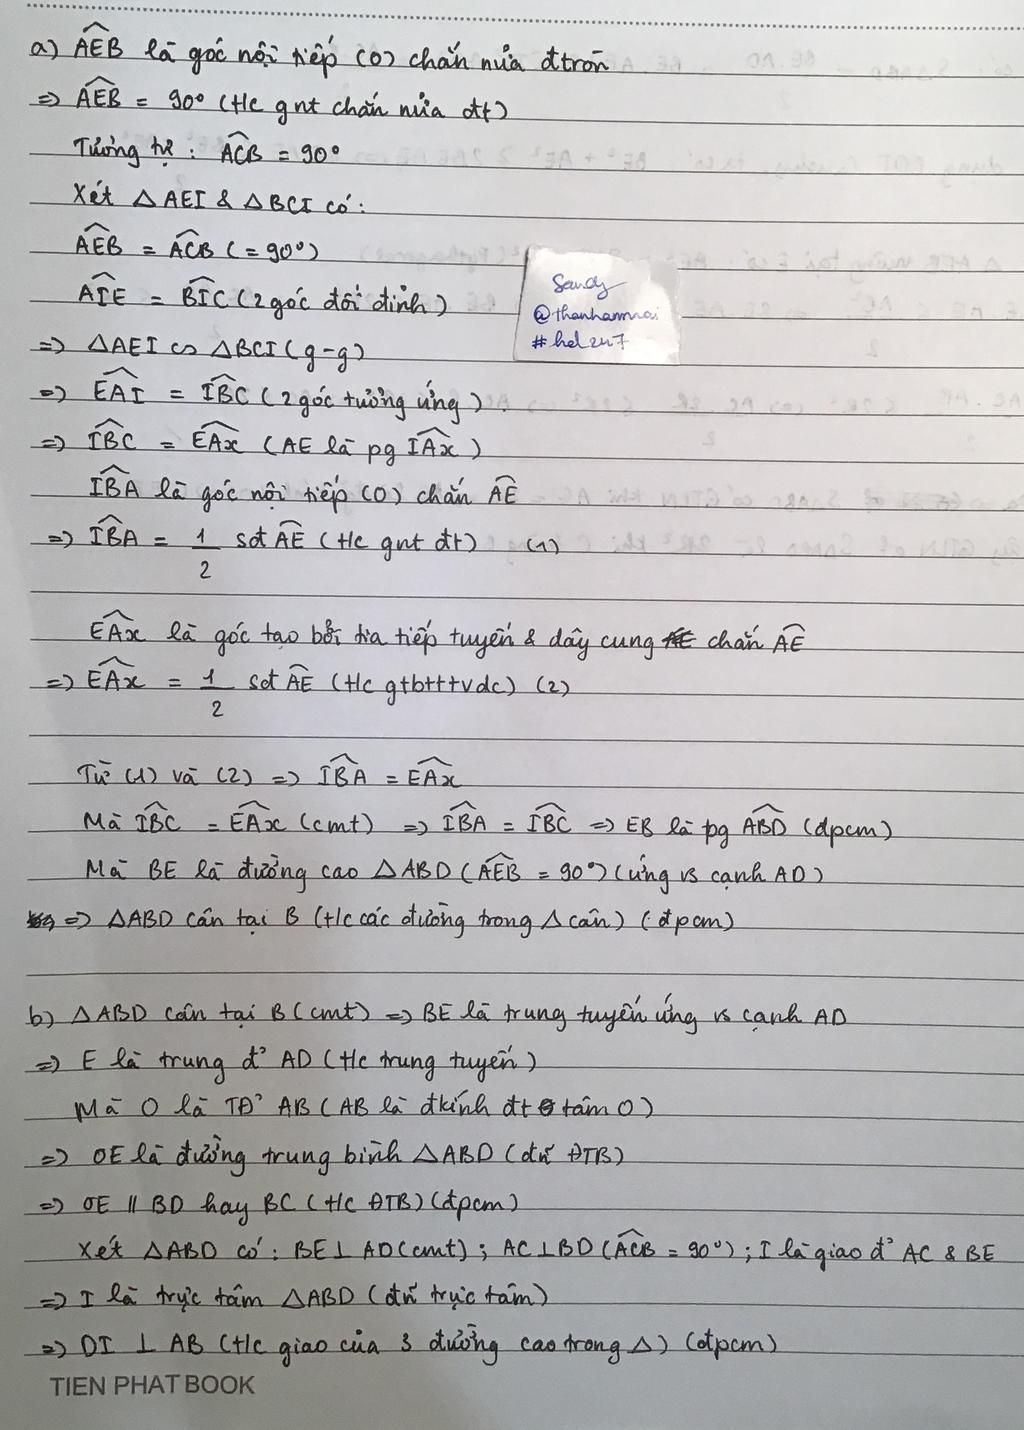 a) AEB là góc nội tiếp (O) chắn nửa đtròn
=> AEB = 90° (t/c gnt chắn nửa đt)
Tương tự : ACB = 90°
Xét △AEI & △BCI có :
AEB = ACB (= 90°)
AIE = BIC (2 góc đối đỉnh)
=> △AEI ∽ △BCI (g-g)
=> EAI = IBC (2 góc tương ứng)
=> IBC = EAx (AE là pg IAx)
IBA là góc nội tiếp (O) chắn AE
=> IBA = 1/2 sđ AE (t/c gnt đt) (1)
EAx là góc tạo bởi tia tiếp tuyến & dây cung chắn AE
=> EAx = 1/2 sđ AE (t/c gtbtttvdc) (2)
Từ (1) và (2) => IBA = EAx
Mà IBC = EAx (cmt) => IBA = IBC => EB là pg ABD (đpcm)
Mà BE là đường cao △ABD (AEB = 90°) (ứng vs cạnh AD)
=> △ABD cân tại B (t/c các đường trong △ cân) (đpcm)
b) △ABD cân tại B (cmt) => BE là trung tuyến ứng vs cạnh AD
=> E là trung đ' AD (t/c trung tuyến)
Mà O là TĐ' AB (AB là đkính đt tâm O)
=> OE là đường trung bình △ABD (đ/n ĐTB)
=> OE // BD hay BC (t/c ĐTB) (đpcm)
Xét △ABD có : BE ⊥ AD (cmt) ; AC ⊥ BD (ACB = 90°) ; I là giao đ' AC & BE
=> I là trực tâm △ABD (đ/n trực tâm)
=> DI ⊥ AB (t/c giao của 3 đường cao trong △) (đpcm)
TIEN PHAT BOOK
Sandy
@thanhamnai
#hd247